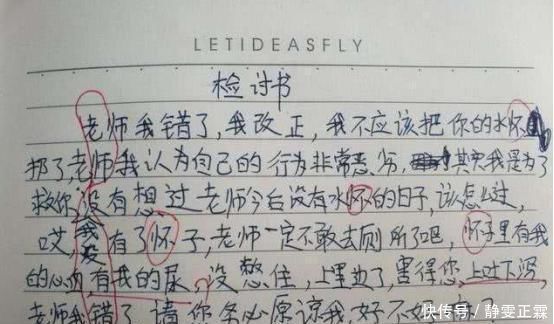 LETIDEASFLY
检讨书
老师我错了,我改正,我不应该把你的水怀
扔了,老师我认为自己的行为非常恶劣,其实我是为了
救你,没有想过老师今后没有水怀的日子,该怎么过,
哎,我有了怀子,老师一定不敢去厕所了吧,怀子里有我
的心血,有我的尿,没憋住,上里边了,害得您上吐下泻,
老师我错了请你务必原谅我,好不好
快传号/静雯正霖